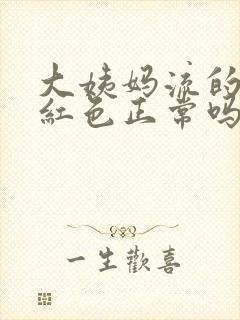 大姨妈流的
紅色正常吗
一生歡喜